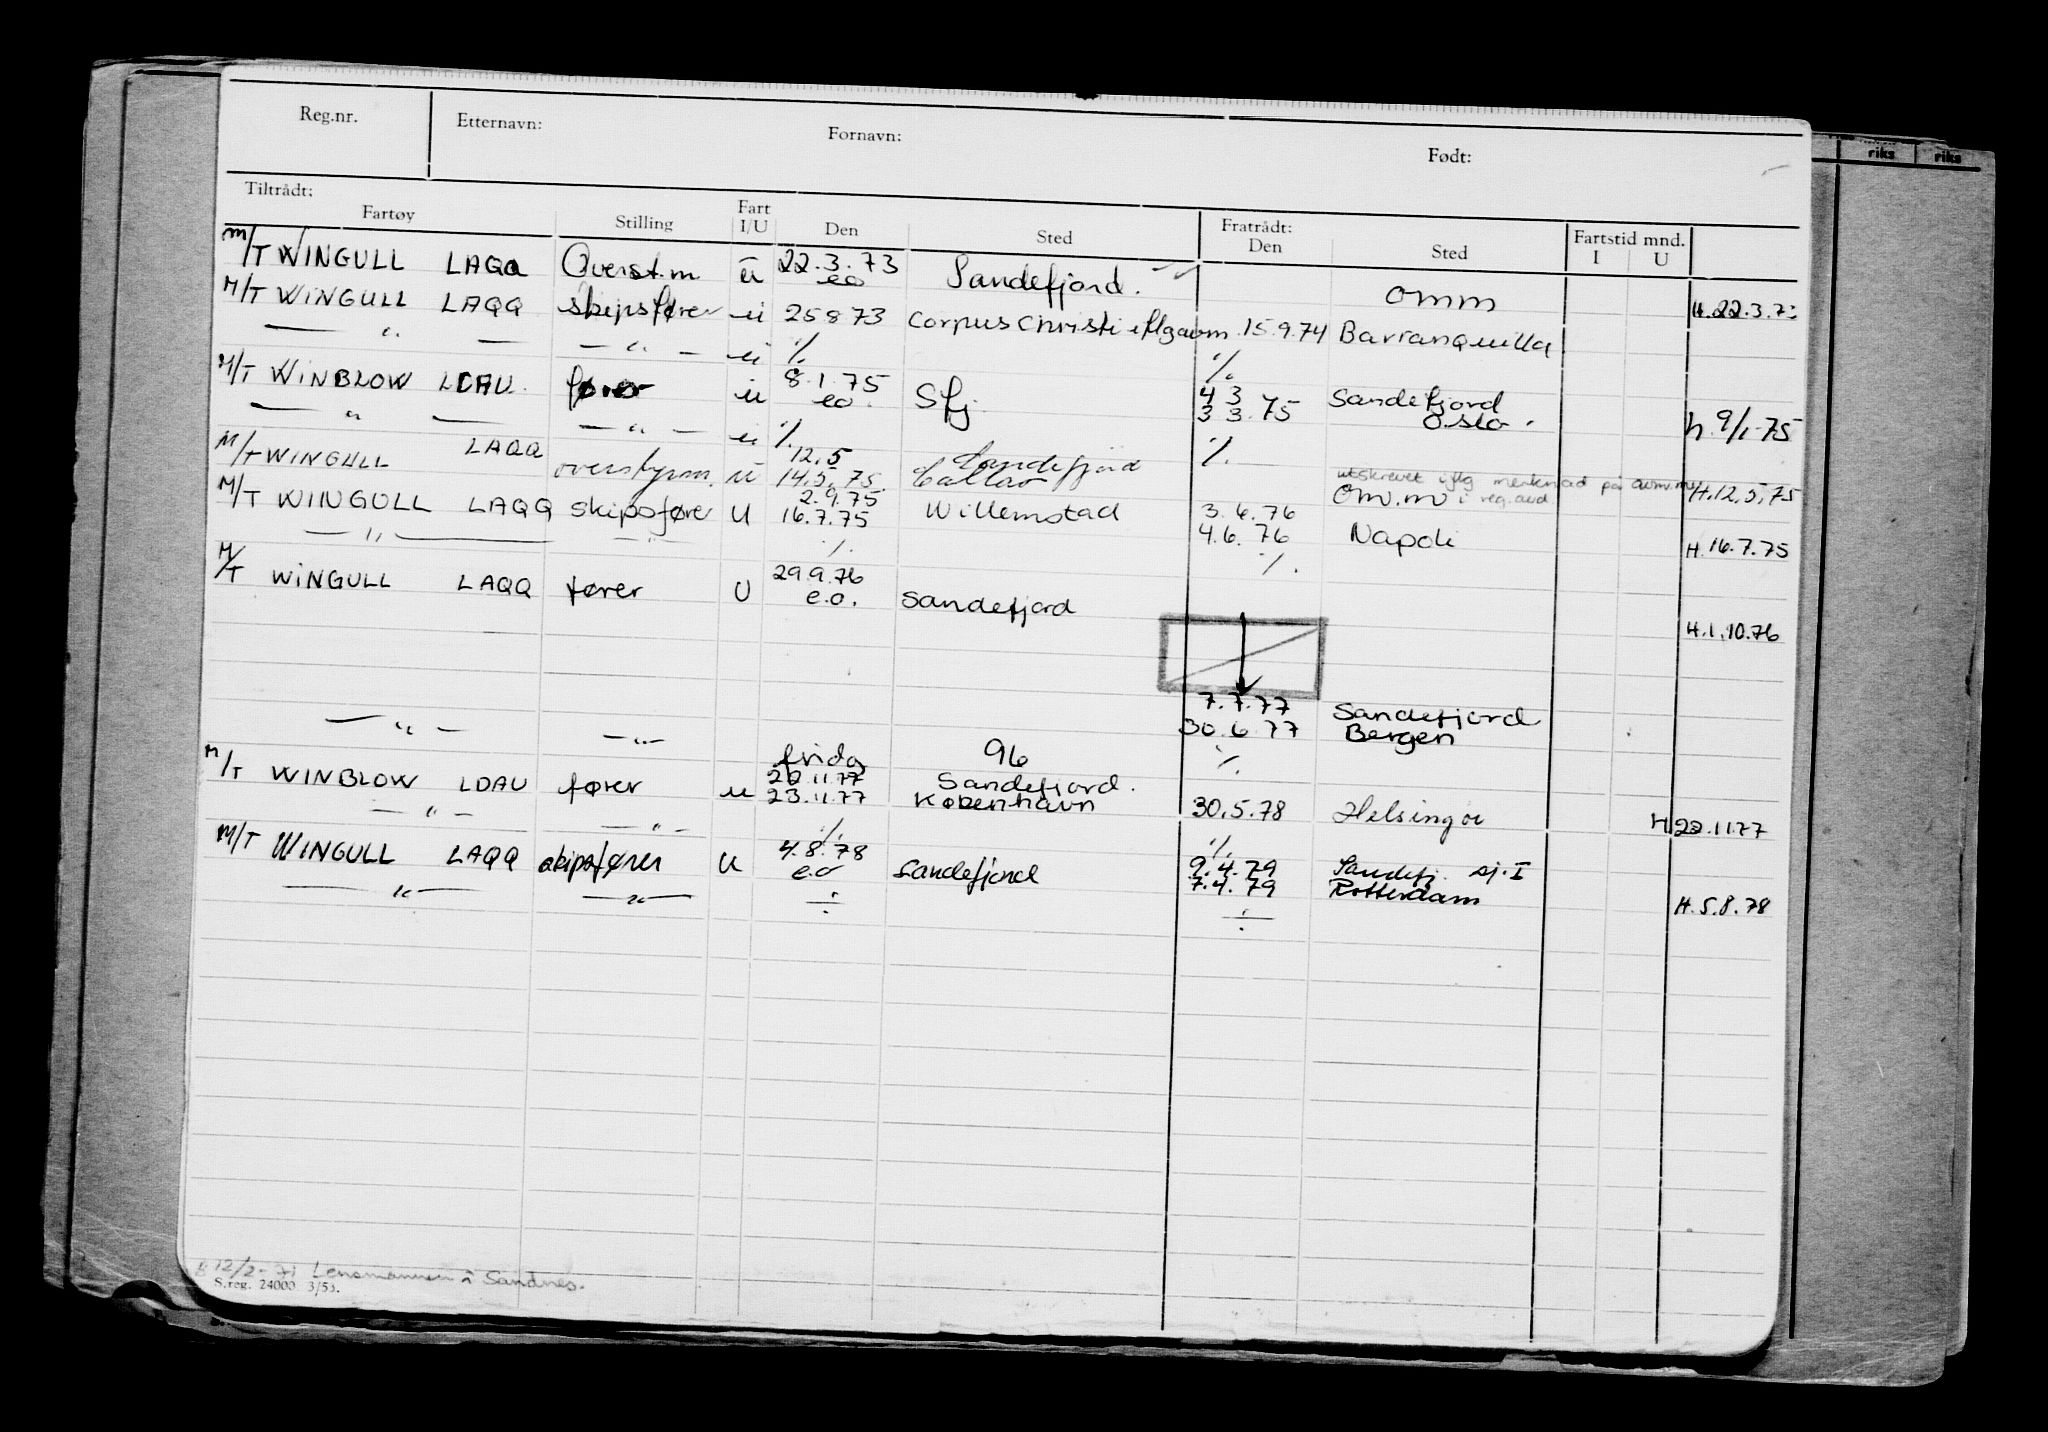 riks riks
Reg.nr. Etternavn: Fornavn: Født:
Tiltrådt: Fratrådt:
Fartøy Stilling Fart I/U Den Sted Den Sted Fartstid mnd. I U
M/T WINGULL LAQQ Overst.m ū 22.3.73 eo Sandefjord. omm H.22.3.73
M/T WINGULL LAQQ skipsfører u 25873 Corpus Christi iflg avm. 15.9.74 Barranquilla
— " — — " — u ./. ./.
M/T WINBLOW LDAU. fører u 8.1.75 eo. Sfj. 4 3 Sandefjord h.9/1-75
3 3.75 Oslo.
— " — — " — u ./. ./.
M/T WINGULL LAQQ overstyrm. u 12.5 Sandefjord utskrevet iflg merknad på avm.mu H.12.5.75
14.5.75. Callao Om.m i reg.avd
M/T WINGULL LAQQ skipsfører U 2.9.75 Willemstad 3.6.76
16.7.75 4.6.76 Napoli H.16.7.75
— " — — " — ./. ./.
M/T WINGULL LAQQ fører U 29.9.76 e.o. Sandefjord H.1.10.76
7.7.77 Sandefjord
30.6.77 Bergen
— " — — " — ./.
frida 96
M/T WINBLOW LDAU fører u 22.11.77 Sandefjord.
23.11.77 København 30.5.78 Helsingør H22.11.77
— " — — " — ./. ./.
M/T WINGULL LAQQ skipsfører U 4.8.78 e.o Sandefjord 9.4.79 Sandefj. sj.I
7.4.79 Rotterdam H.5.8.78
— " — — " — ÷ ÷
12/2-71 Lensmannen i Sandnes.
S.reg. 24000 3/53.